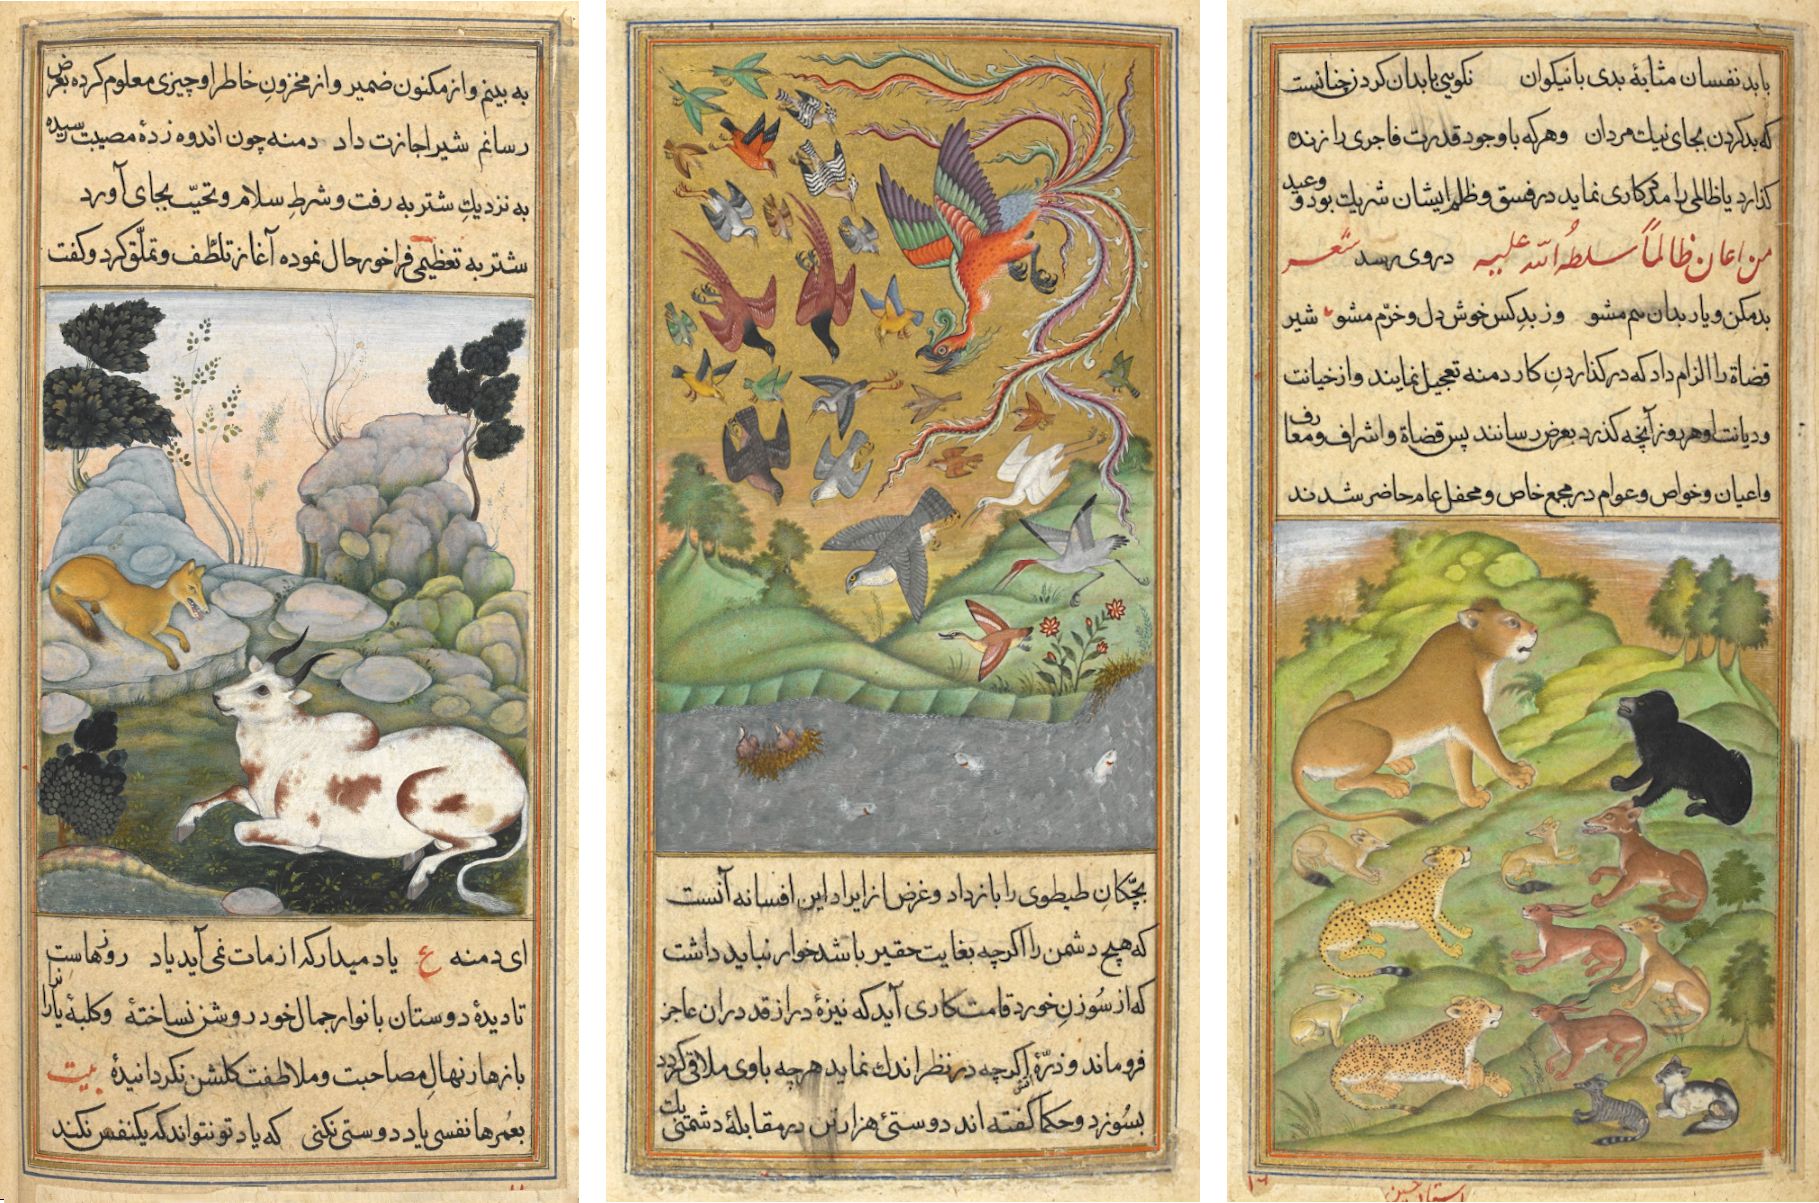 به بینم و از مکنون ضمیر و از مخزون خاطر او چیزی معلوم کرده بعرض
رسانم شیر اجازت داد دمنه چون اندوه زدهٔ مصیبت رسیده
به نزدیك شتربه رفت و شرط سلام و تحیّت بجای آورد
شتربه تعظیمی فراخور حال نموده آغاز تلطّف و تملّق کرد و گفت
ای دمنه ع یاد میدار که از مات نمی آید یاد روزهاست
تا دیدهٔ دوستان بانوار جمال خود روشن نساختهٔ و کلبهٔ یاران را
بازهار نهال مصاحبت و ملاطفت گلشن نگردانیدهٔ بیت
بعمرها نفسی یاد دوستی نکنی که یاد تو نتواند که یکنفس نکند
بچّکان طیطوی را باز داد و غرض از ایراد این افسانه آنست
که هیچ دشمن را اگرچه بغایت حقیر باشد خوار نباید داشت
که از سوزن خورد قامت کاری آید که نیزهٔ دراز قد دران عاجز
فروماند و ذرّهٔ آتش اگرچه در نظر اندك نماید هرچه باوی ملاقی گردد
بسوزد و حکما گفته اند دوستئ هزار تن در مقابلهٔ دشمنئ یك
با بد نفسان مثابهٔ بدی با نیکوان نکویی با بدان کردن چنانست
که بد کردن بجای نیك مردان و هرکه با وجود قدرت فاجری را زنده
گذارد یا ظالمی را مددکاری نماید در فسق و ظلم ایشان شریك بود و وعید
من اعان ظالماً سلطه الله علیه در وی رسد شعر
بد مکن و یار بدان هم مشو وز بد کس خوش دل و خرّم مشو شیر
قضاة را الزام داد که در گذاردن کار دمنه تعجیل نمایند و از خیانت
و دیانت او هر روز آنچه گذرد بعرض رسانند پس قضاة و اشراف و معارف
و اعیان و خواص و عوام در مجمع خاص و محفل عام حاضر شدند
استاد حسین